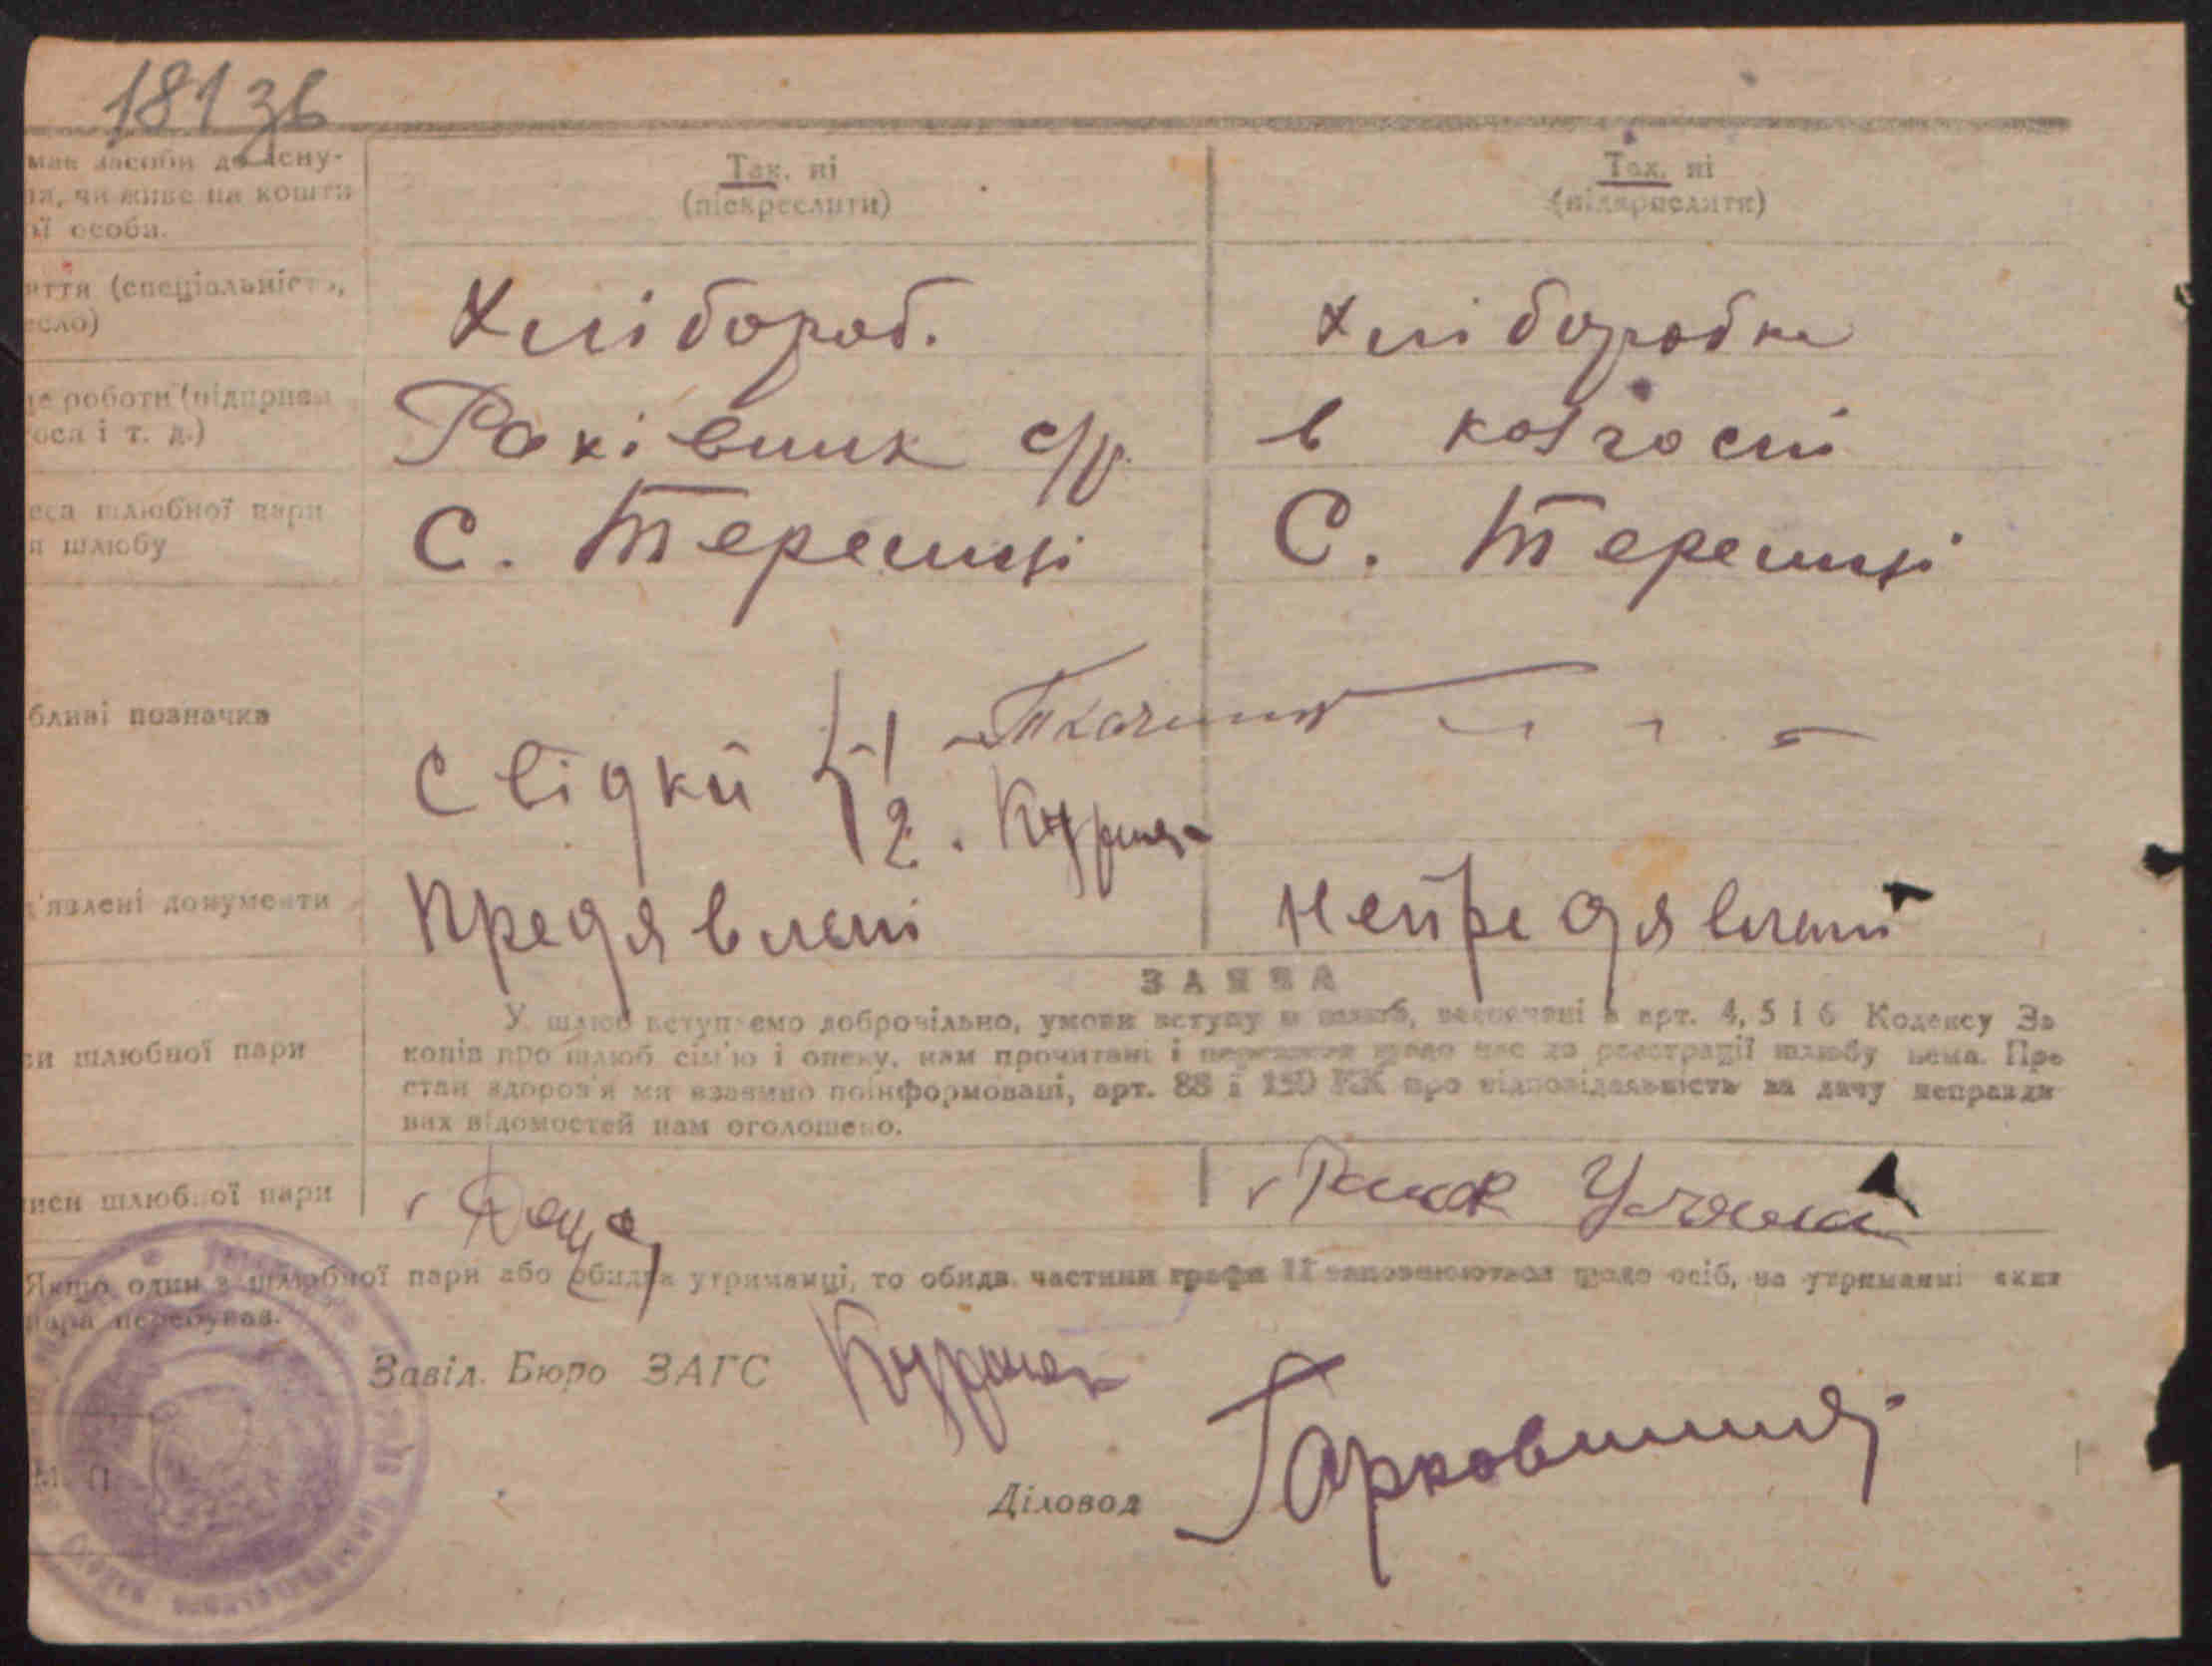 181 зв
має засоби до існу-
ня, чи живе на кошти
ої особи.
Так, ні
(підкреслити)
Так, ні
(підкреслити)
яття (спеціальність,
есло)
Хлібороб.
Хліборобка
це роботи (підприєм
госп і т. д.)
Раківчик с/р.
в колгоспі
еса шлюбної пари
я шлюбу
С. Терешці
С. Терешці
бливі позначки
Свідки
1
2.
д'явлені документи
предявлені
непредявлені
ЗАЯВА
У шлюб вступаємо добровільно, умови вступу в шлюб, зазначені в арт. 4, 5 і 6 Кодексу За
конів про шлюб сім'ю і опеку, нам прочитані і перешкод щодо нас до реєстрації шлюбу нема. Про
стан здоров'я ми взаємно поінформовані, арт. 88 і КК про відповідальність за дачу неправди
вих відомостей нам оголошено.
си шлюбної пари
писи шлюбної пари
Якщо один з шлюбної пари або обидва утриманці, то обидві частини графи 11 заповнюються щодо осіб, на утриманні яких
пара перебуває.
Завід. Бюро ЗАГС
М. П.
Діловод